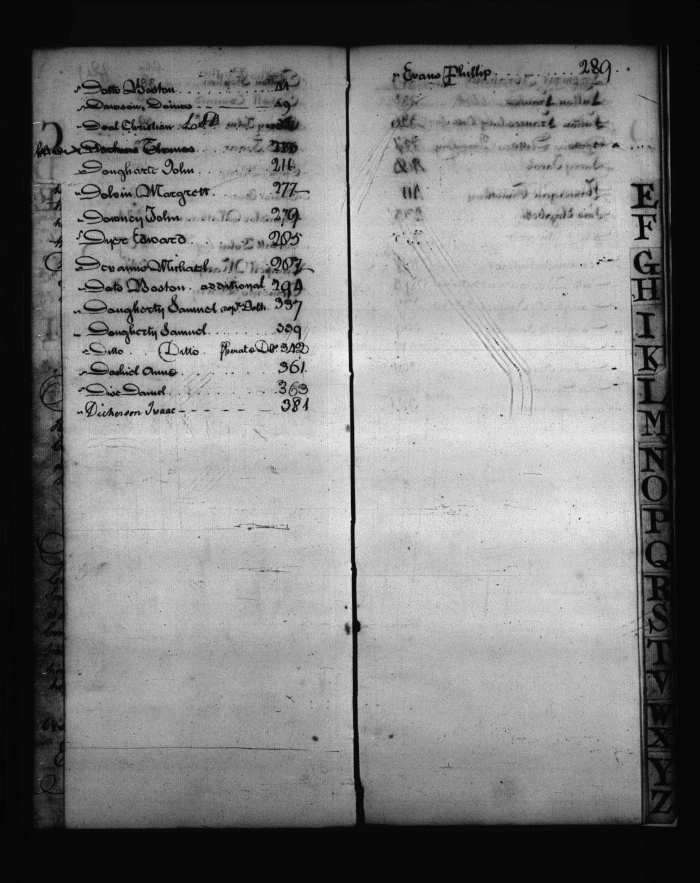 Dotts Boston 41
Dawson, Deines 49
Deal Christian
Dickson Thomas
Dougharte John 211
Dolvin Margrett 277
Downey John 279
Dyer Edward 285
Devanne Michael 287
Dots Boston additional 294
Daugherty Samuel 337
Daugherty Samuel 339
Ditto Ditto 342
Dashiel Anne 361
Dise Daniel 363
Dickerson Isaac 381
Evans Phillip 289
E
F
G
H
I
K
L
M
N
O
P
Q
R
S
T
V
W
X
Y
Z